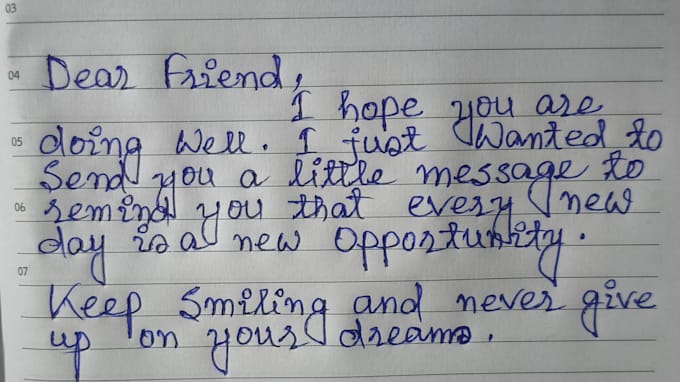 03
04 Dear Friend,
I hope you are
05 doing well. I just wanted to
Send you a little message to
06 remind you that every new
day is a new opportunity.
07
Keep Smiling and never give
up on your dreams.